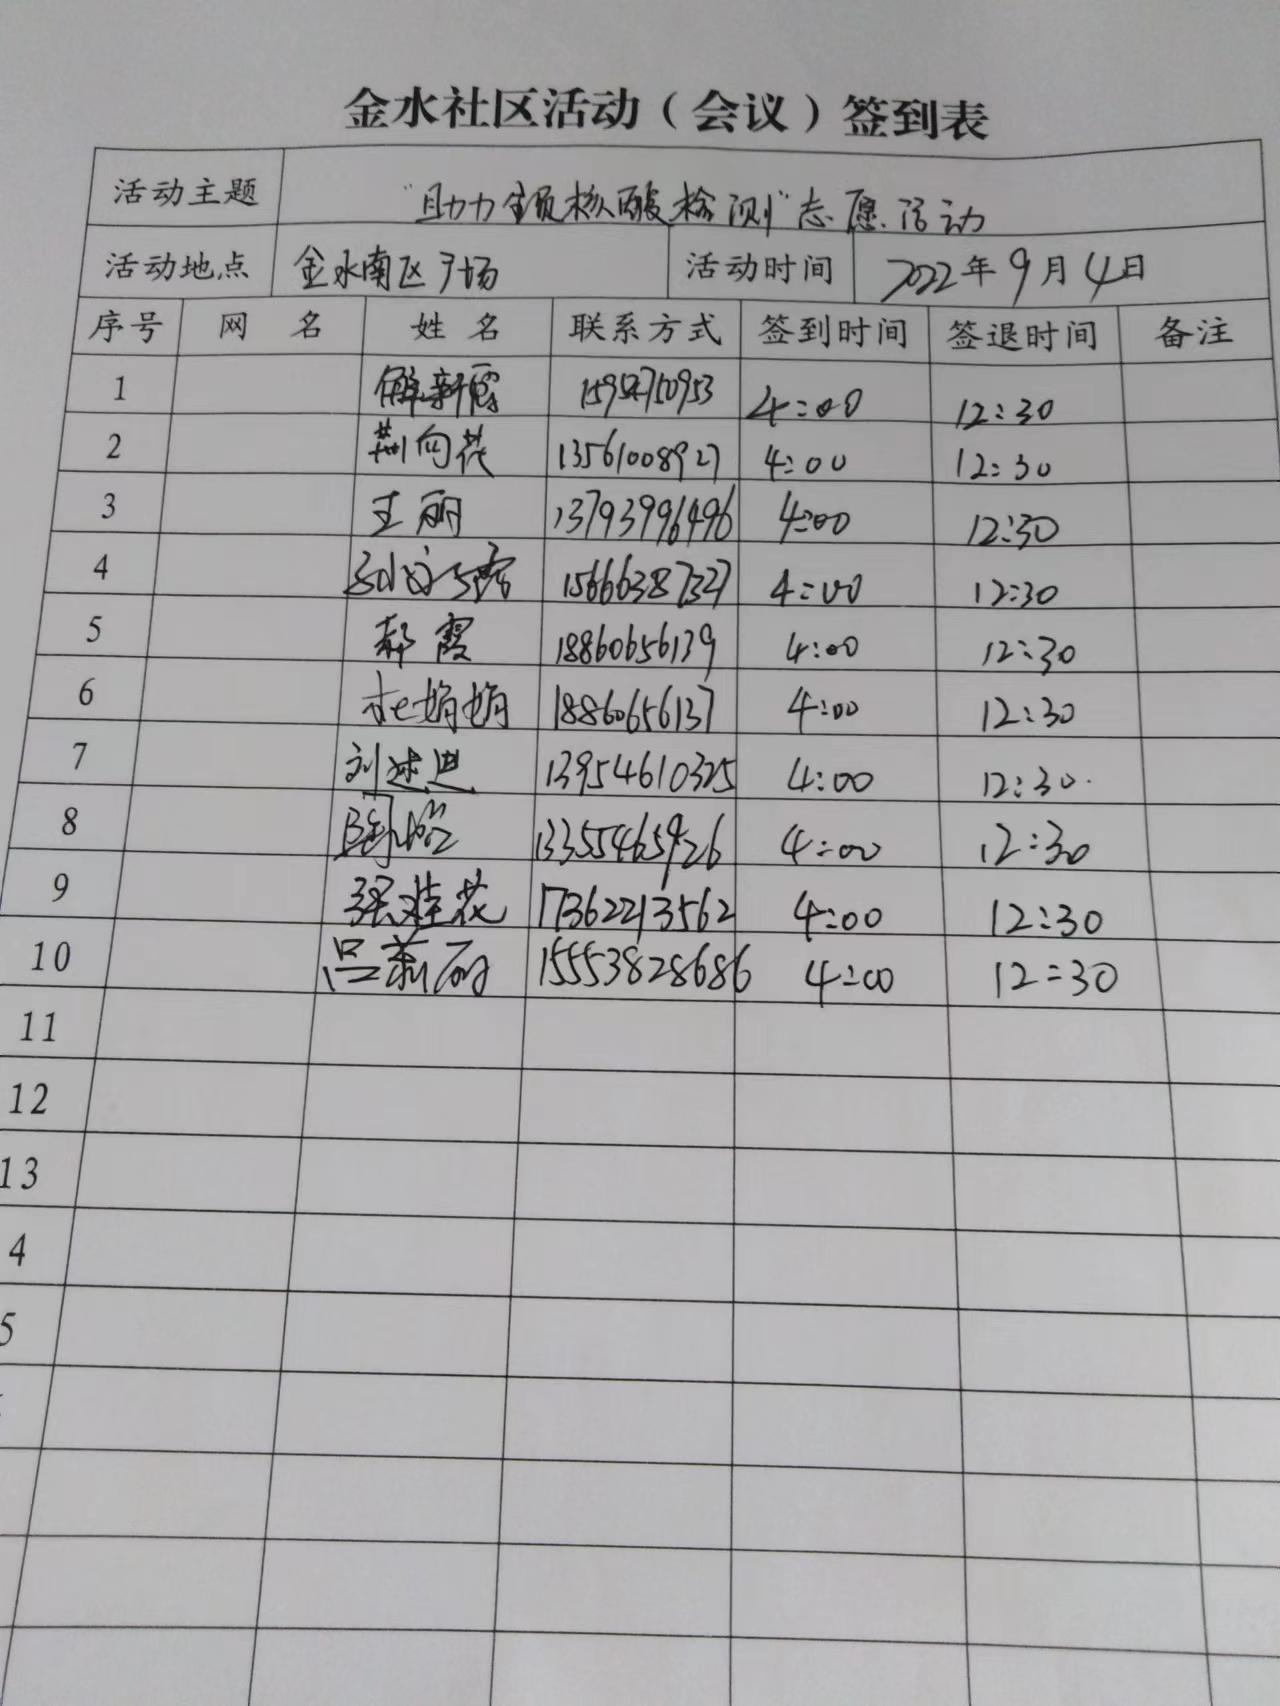 金水社区活动（会议）签到表
活动主题 "助力全员核酸检测"志愿活动
活动地点 金水南区广场 活动时间 2022年9月4日
序号 网名 姓名 联系方式 签到时间 签退时间 备注
1 解新霞 4:00 12:30
2 荆向花 13561008927 4:00 12:30
3 王丽 13793996496 4:00 12:30
4 15666387327 4:00 12:30
5 郝霞 18860656139 4:00 12:30
6 杜娟娟 18860656137 4:00 12:30
7 刘述进 13954610325 4:00 12:30
8 13355465926 4:00 12:30
9 张桂花 17362213562 4:00 12:30
10 吕 15553828686 4:00 12:30
11
12
13
4
5